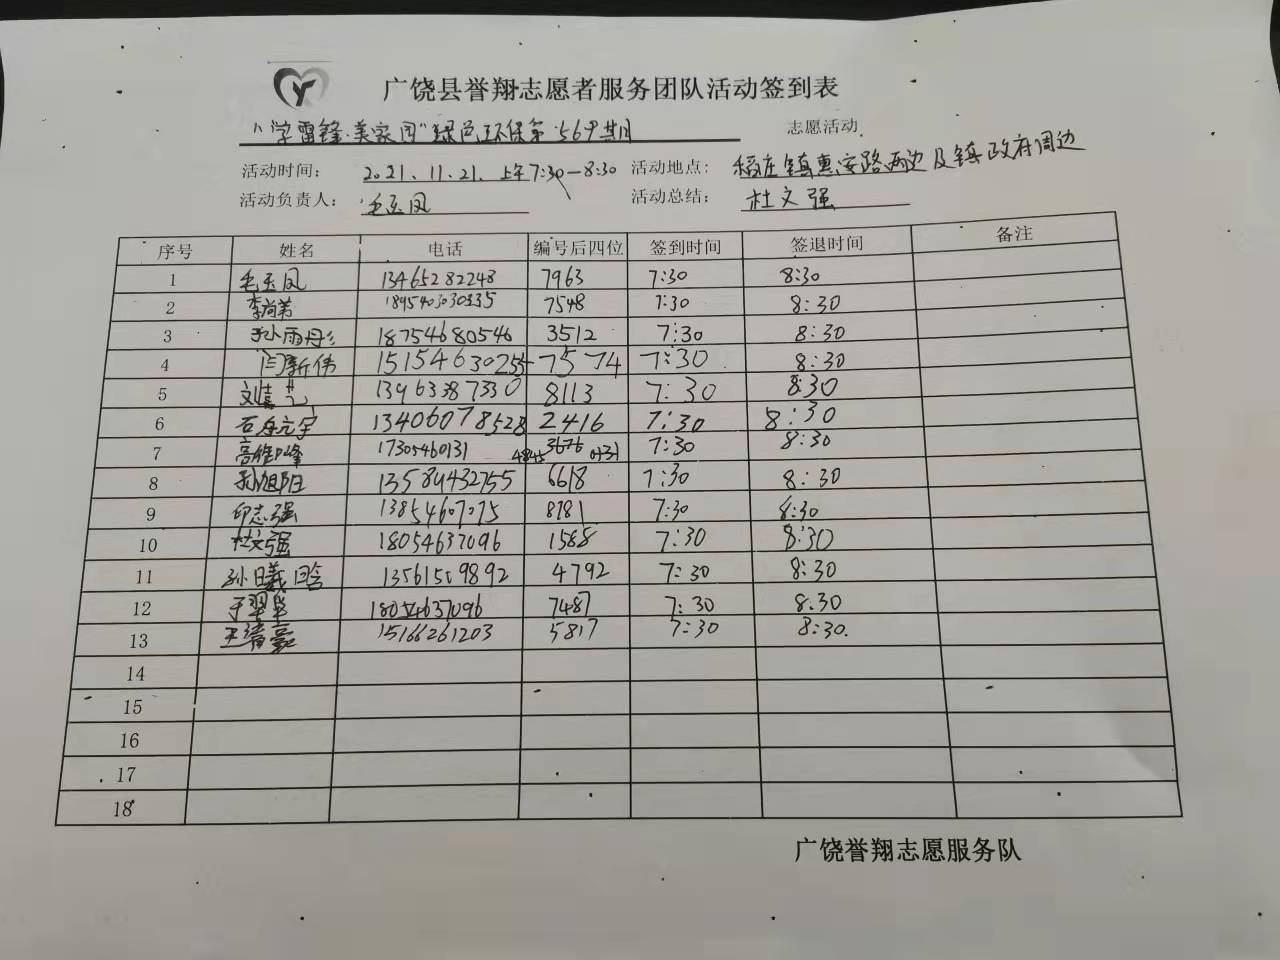 广饶县誉翔志愿者服务团队活动签到表
"学雷锋·美家园"绿色环保第569期 志愿活动
活动时间: 2021.11.21.上午7:30—8:30 活动地点: 稻庄镇惠安路两边及镇政府周边
活动负责人: 毛玉凤 活动总结: 杜文强
序号 姓名 电话 编号后四位 签到时间 签退时间 备注
1 毛玉凤 13465282248 7963 7:30 8:30
2 李尚弟 7548 7:30 8:30
3 孙雨丹 18754680546 3512 7:30 8:30
4 闫新伟 15154630255 7574 7:30 8:30
5 13963387330 8113 7:30 8:30
6 13406078528 2416 7:30 8:30
7 17305460131 4845 3676 0131 7:30 8:30
8 孙旭阳 13584432755 6618 7:30 8:30
9 印志强 13854607075 8781 7:30 8:30
10 杜文强 18054637096 1588 7:30 8:30
11 孙曦晗 13561509892 4792 7:30 8:30
12 于翠华 18054637096 7487 7:30 8.30
13 王清豪 15166261203 5817 7:30 8:30.
14
15
16
17
18
广饶誉翔志愿服务队